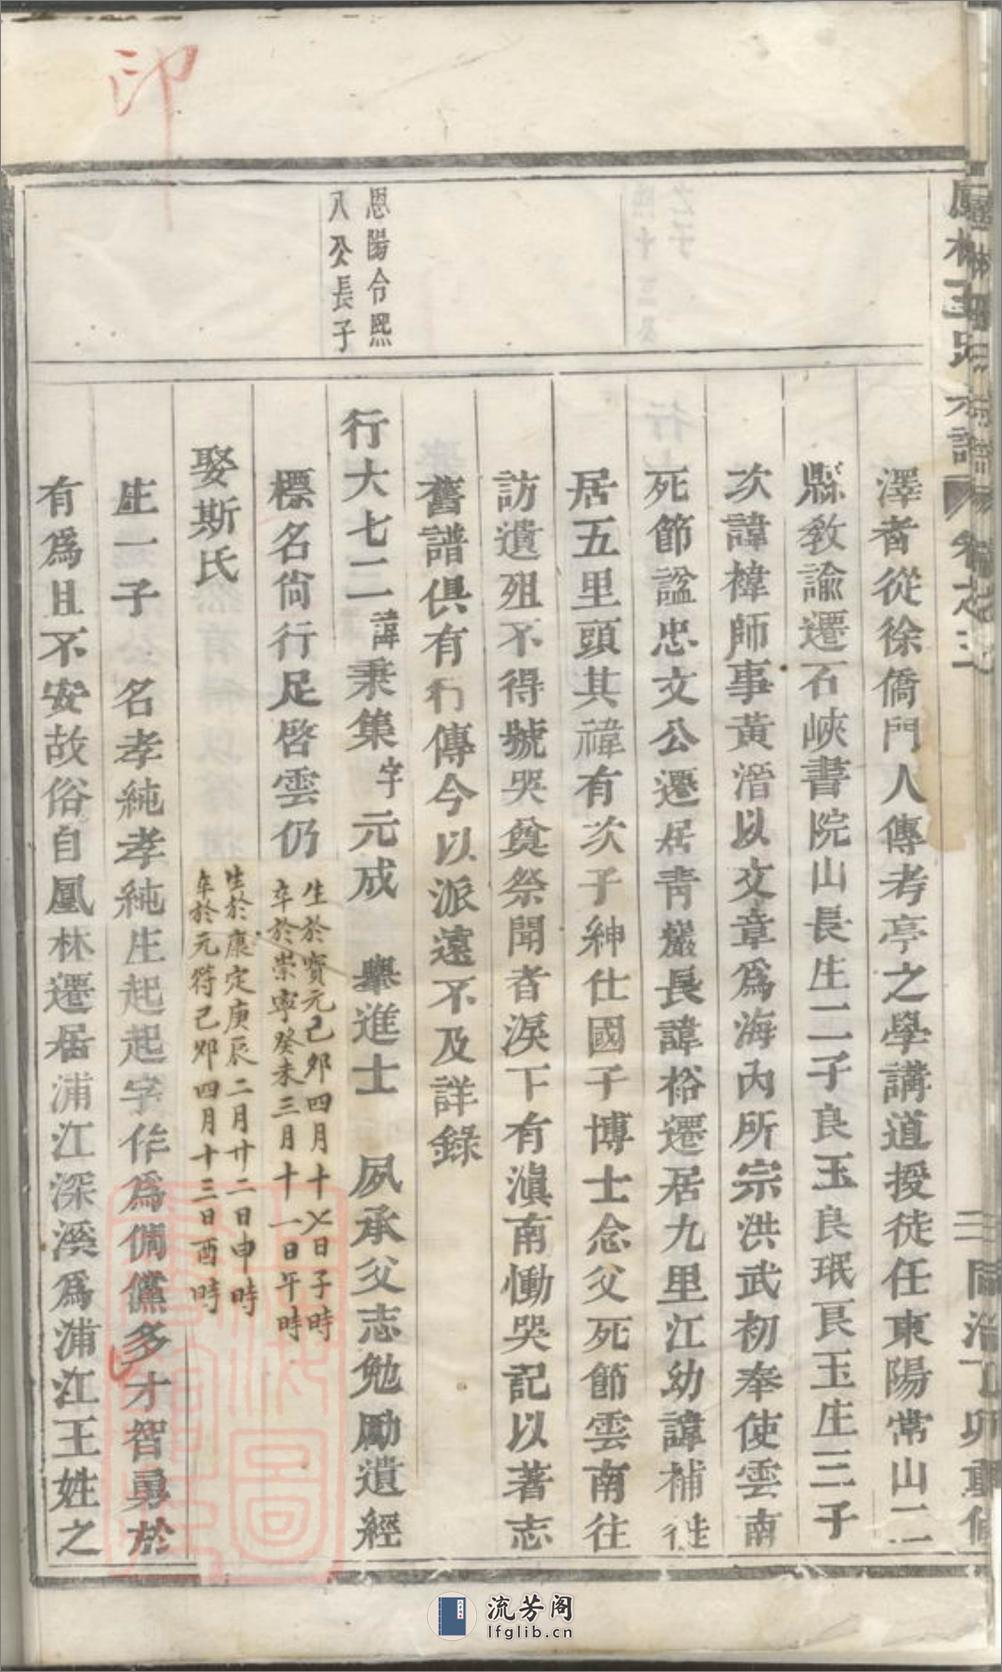 印
鳳林王氏宗譜
卷之三
三
同治丁卯重修
恩陽令熙
八公長子
澤者從徐僑門人傳考亭之學講道授徒任東陽常山二
縣教諭遷石峽書院山長生二子良玉良珉良玉生三子
次諱褘師事黃溍以文章為海內所宗洪武初奉使雲南
死節諡忠文公遷居青巖長諱裕遷居九里江幼諱補徙
居五里頭其禕有次子紳仕國子博士念父死節雲南往
訪遺殂不得號哭奠祭聞者淚下有滇南慟哭記以著志
舊譜俱有行傳今以派遠不及詳錄
行大七二諱秉集字元成 舉進士 夙承父志勉勵遺經
標名尙行足啓雲仍
生於寶元己卯四月十七日子時
卒於崇寧癸未三月十一日午時
娶斯氏
生於康定庚辰二月廿二日申時
卒於元符己卯四月十三日酉時
生一子 名孝純孝純生起起字作為倜儻多才智勇於
有為且不安故俗自鳳林遷居浦江深溪為浦江王姓之
流芳阁
lfglib.cn